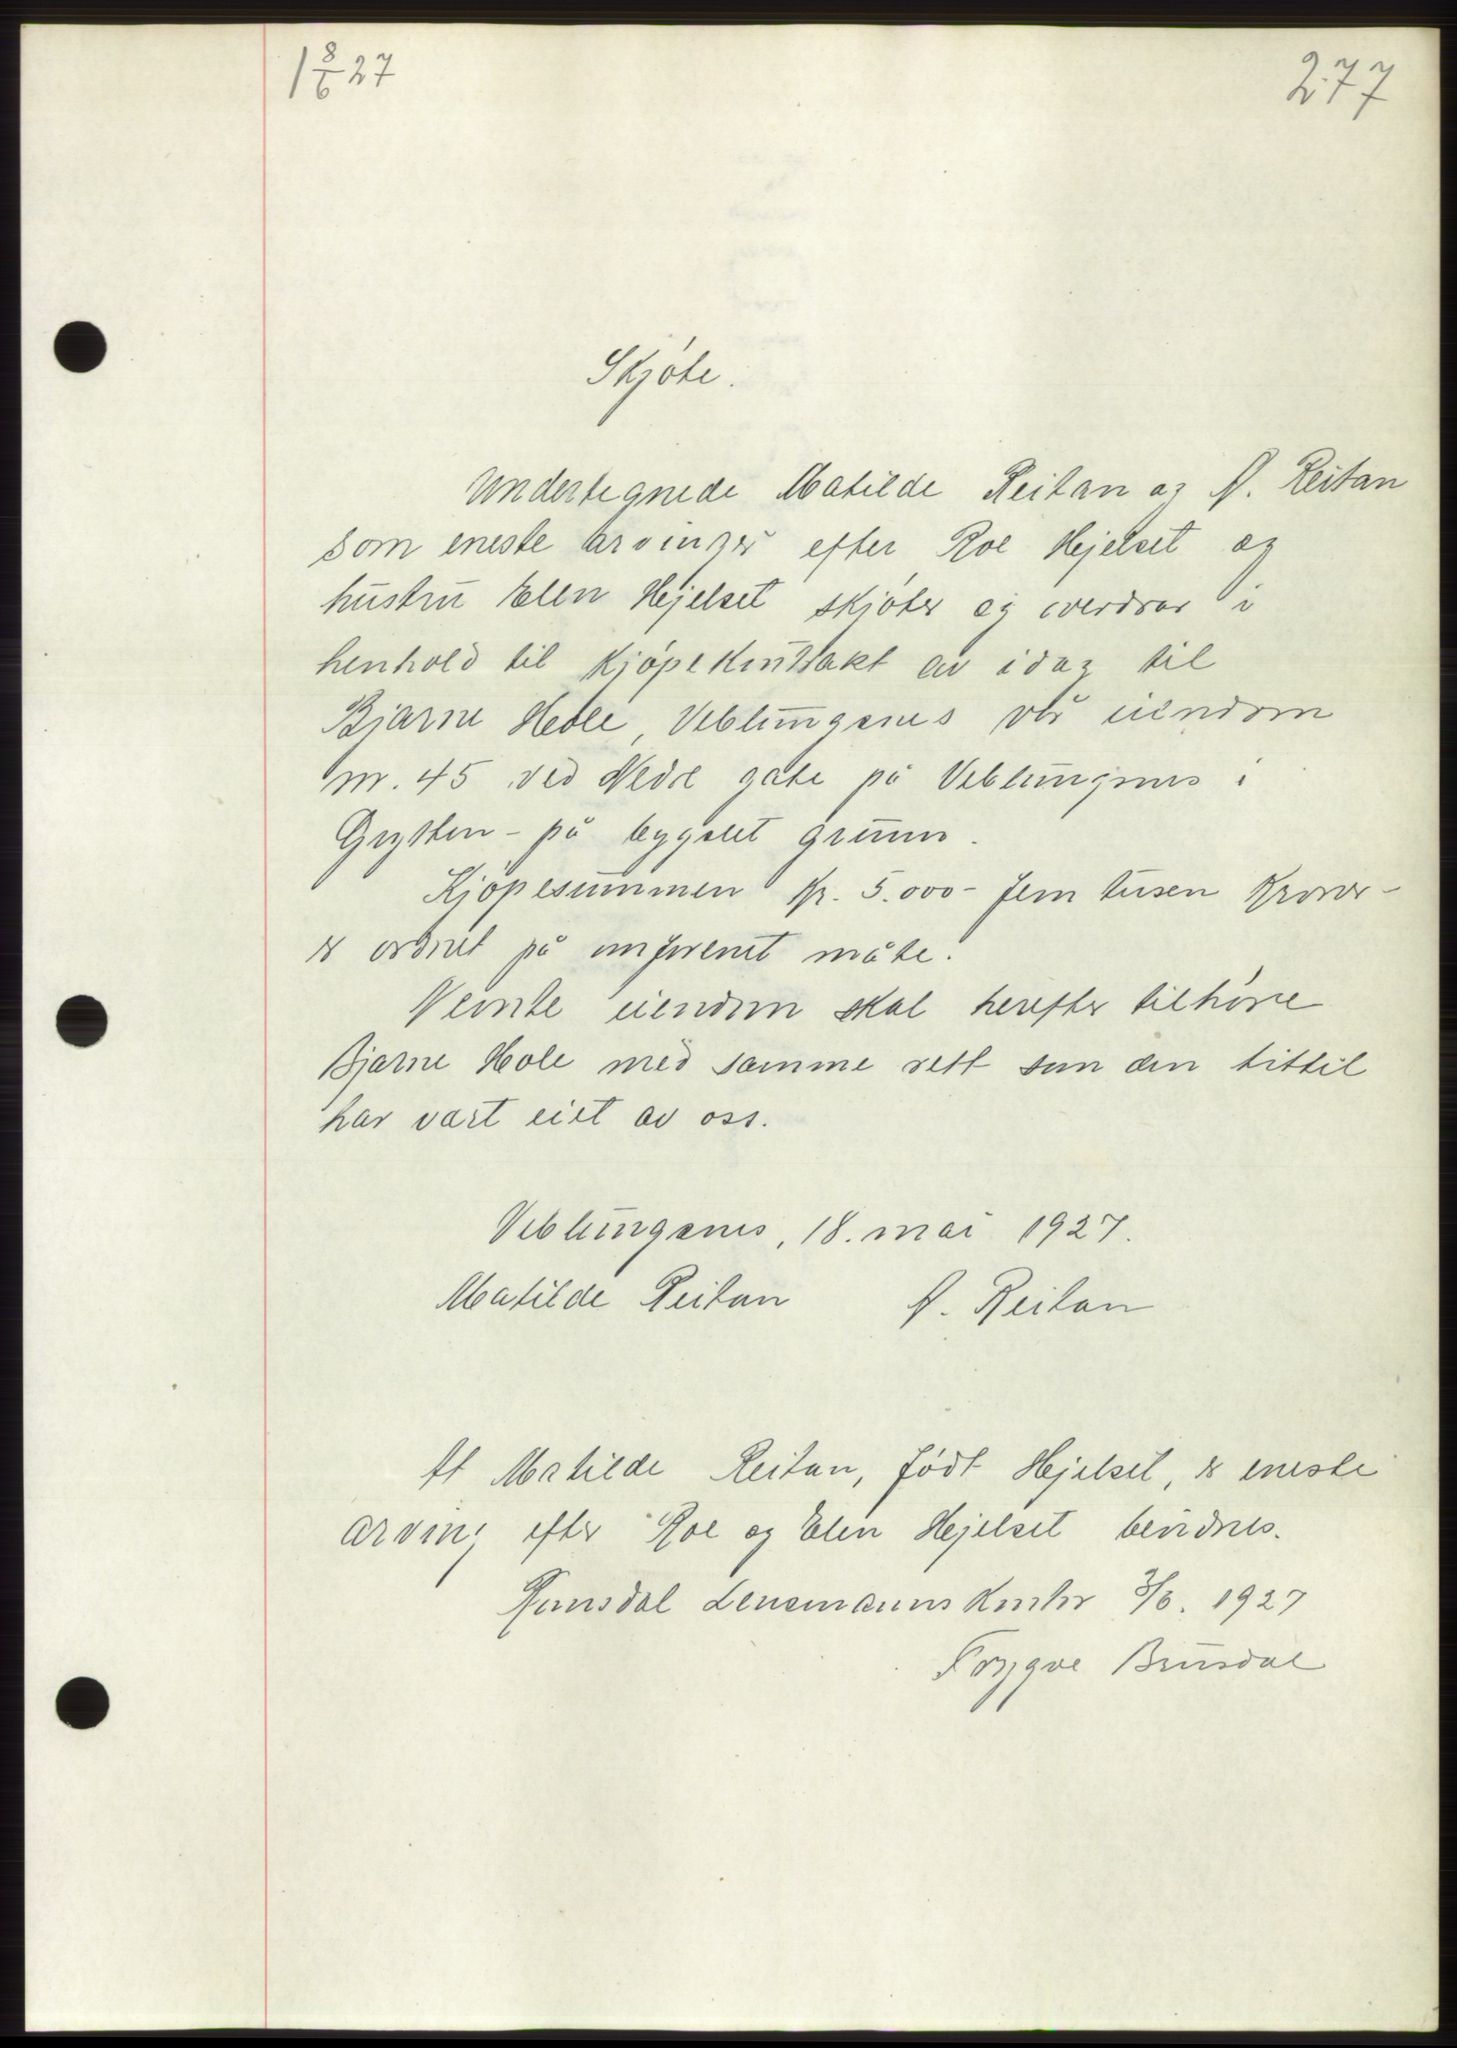 1 8/6 27
277
Skjøte.
Undertegnede Matilde Reitan og A. Reitan
som eneste arvinger efter Roe Hjelset og
hustru Elen Hjelset skjøter og overdrar i
henhold til kjøpekontrakt av idag til
Bjarne Hole, Veblungsnes vår eiendom
nr. 45 ved Nedre gate på Veblungsnes i
Grytten - på bygslet grunn.
Kjøpesummen kr. 5.000 - fem tusen kroner -
er ordnet på omforenet måte.
Nevnte eiendom skal herefter tilhøre
Bjarne Hole med samme rett som den hittil
har vært eiet av oss.
Veblungsnes, 18. mai 1927.
Matilde Reitan A. Reitan
At Matilde Reitan, født Hjelset, er eneste
arving efter Roe og Elen Hjelset bevidnes.
Romsdal Lensmannskontor 3/6. 1927
Trygve Brusdal